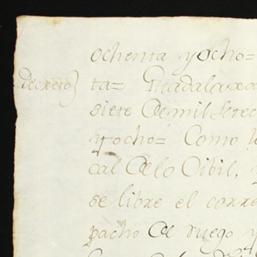 ochenta y ocho=
decreto)
ta= Guadalaxa
siete de mil Setec
y ocho= Como
cal de lo Cibil,
se libre el corre
pacho de ruego y